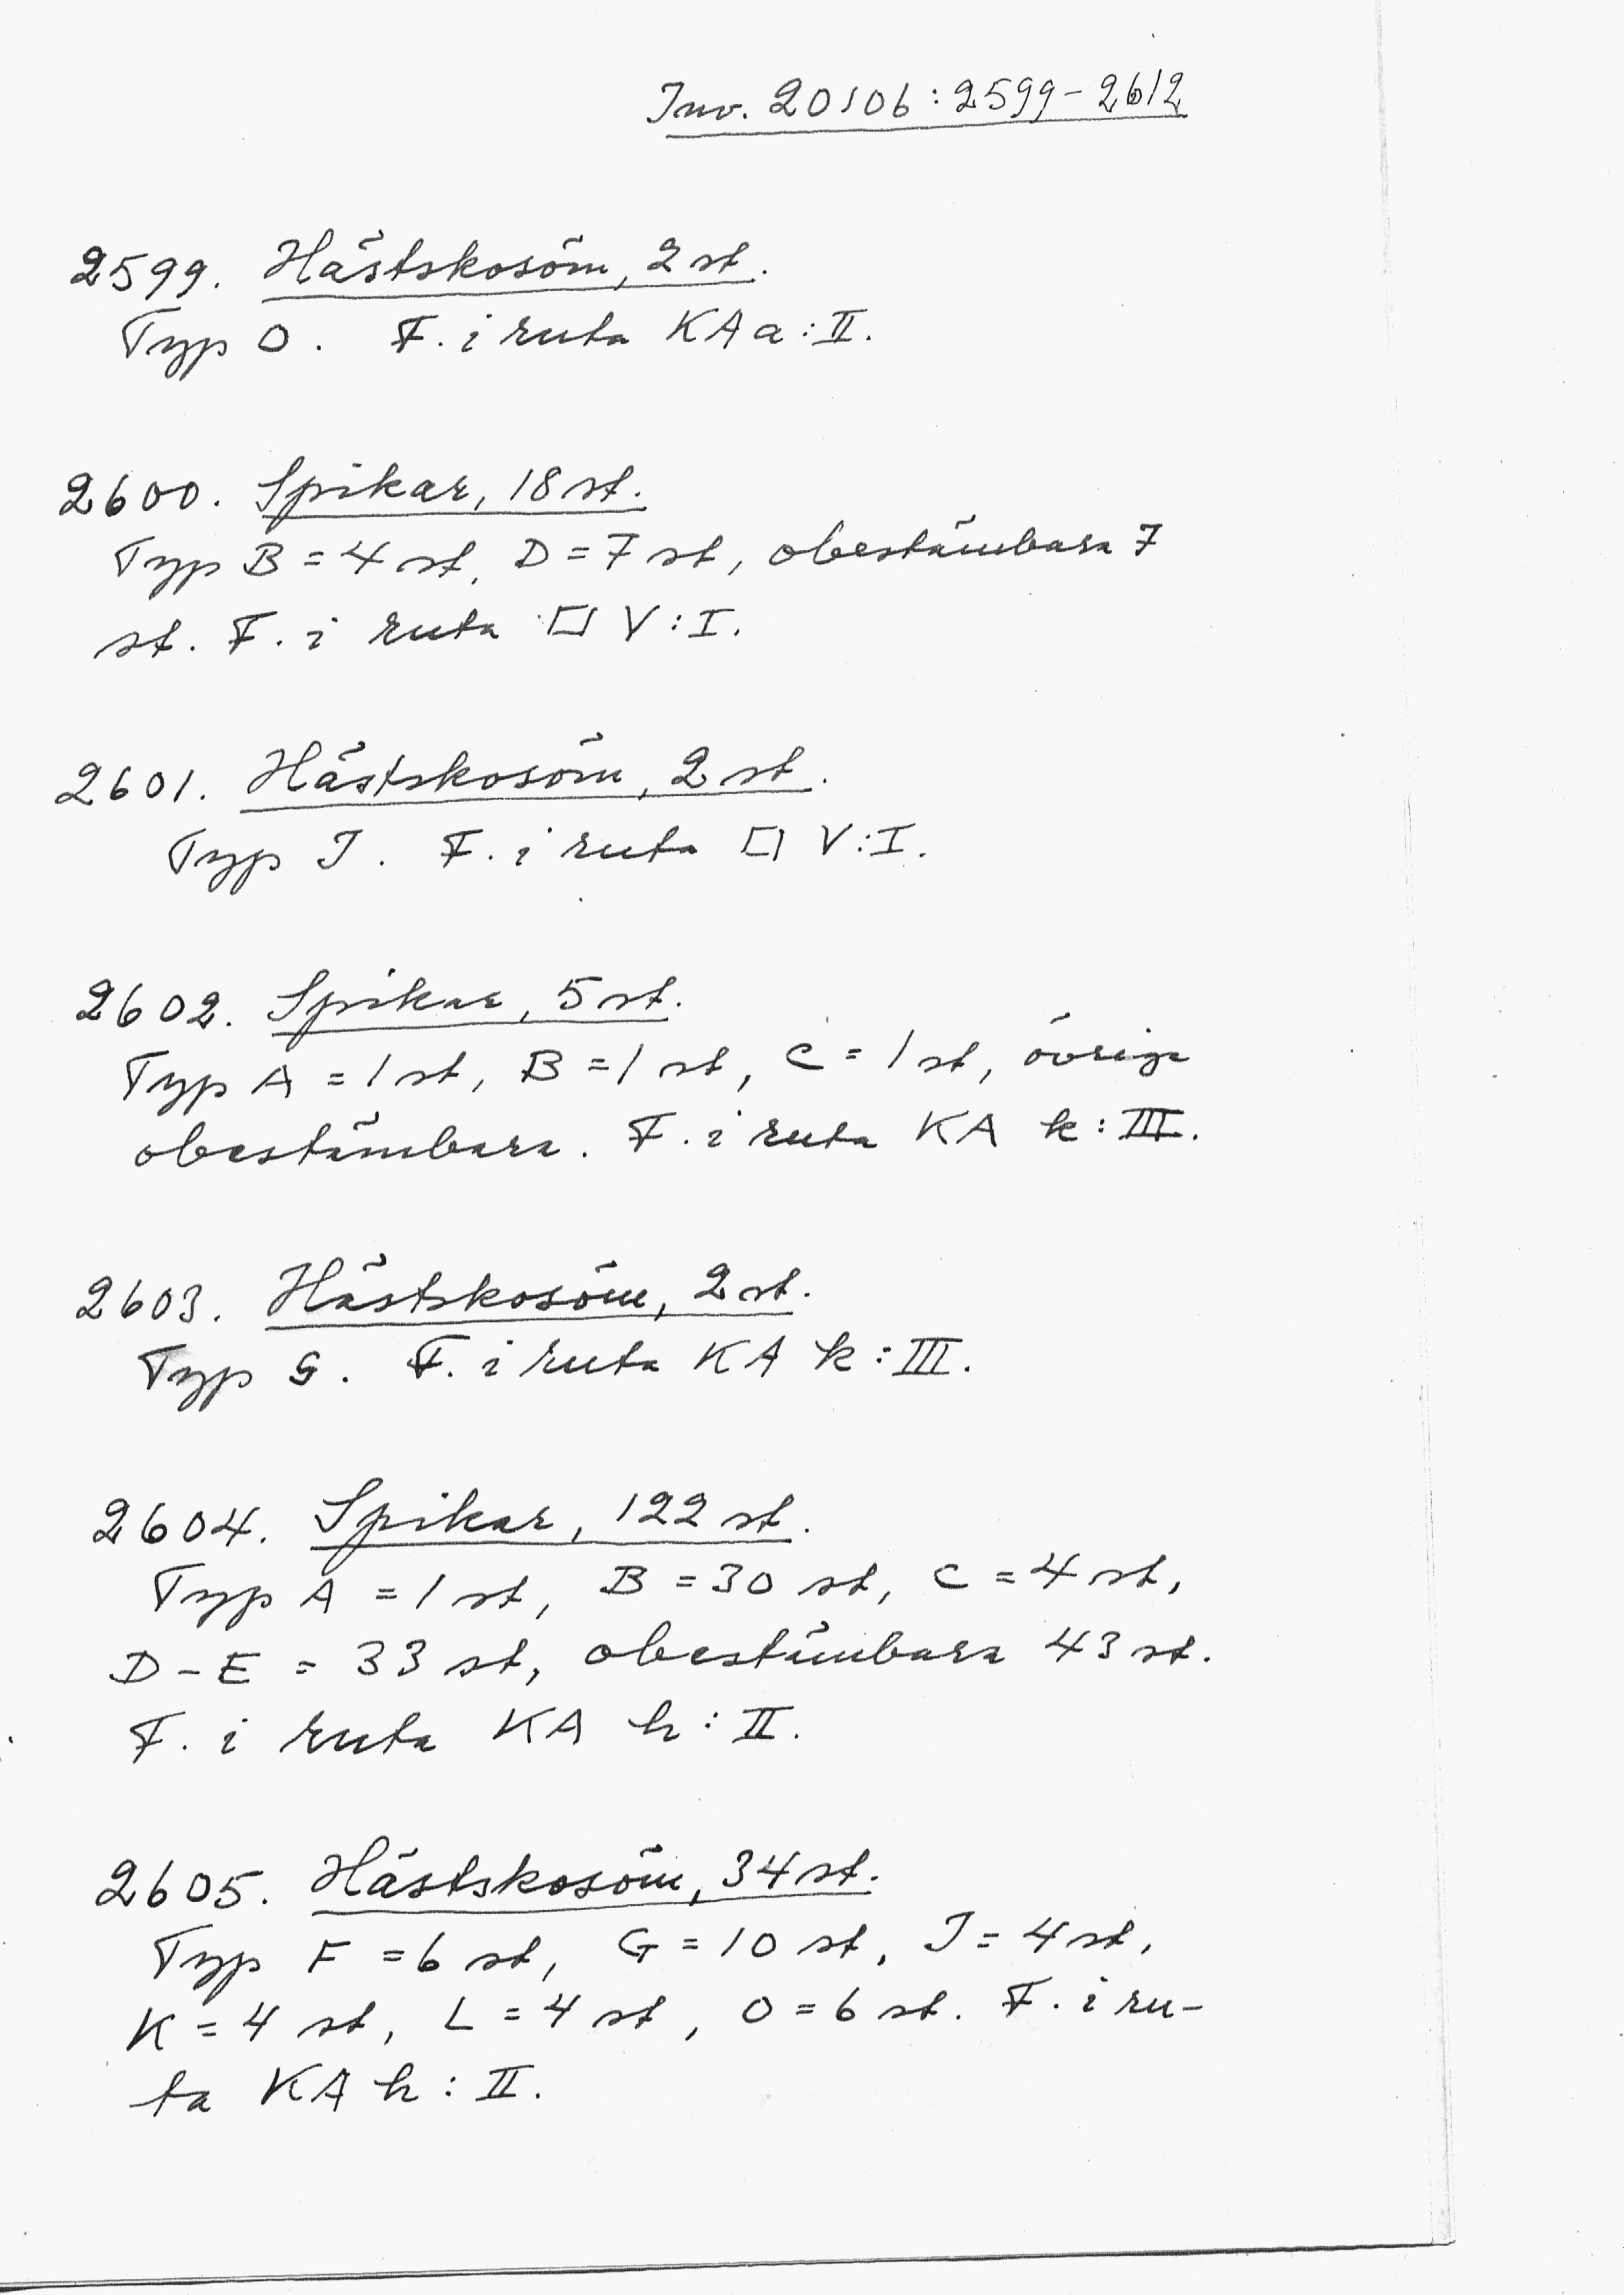 Inv. 20106:2599-2612
2599. Hästskosöm, 2 st.
Typ O. F. i ruta KA a:II.
2600. Spikar, 18 st.
Typ B = 4 st, D = 7 st, obestämbara 7
st. F. i ruta □ V:I.
2601. Hästskosöm, 2 st.
Typ J. F. i ruta □ V:I.
2602. Spikar, 5 st.
Typ A = 1 st, B = 1 st, C = 1 st, övriga
obestämbara. F. i ruta KA k:III.
2603. Hästskosöm, 2 st.
Typ G. F. i ruta KA k:III.
2604. Spikar, 122 st.
Typ A = 1 st, B = 30 st, C = 4 st,
D-E = 33 st, obestämbara 43 st.
F. i ruta KA h:II.
2605. Hästskosöm, 34 st.
Typ F = 6 st, G = 10 st, J = 4 st,
K = 4 st, L = 4 st, O = 6 st. F. i ru-
ta KA h:II.